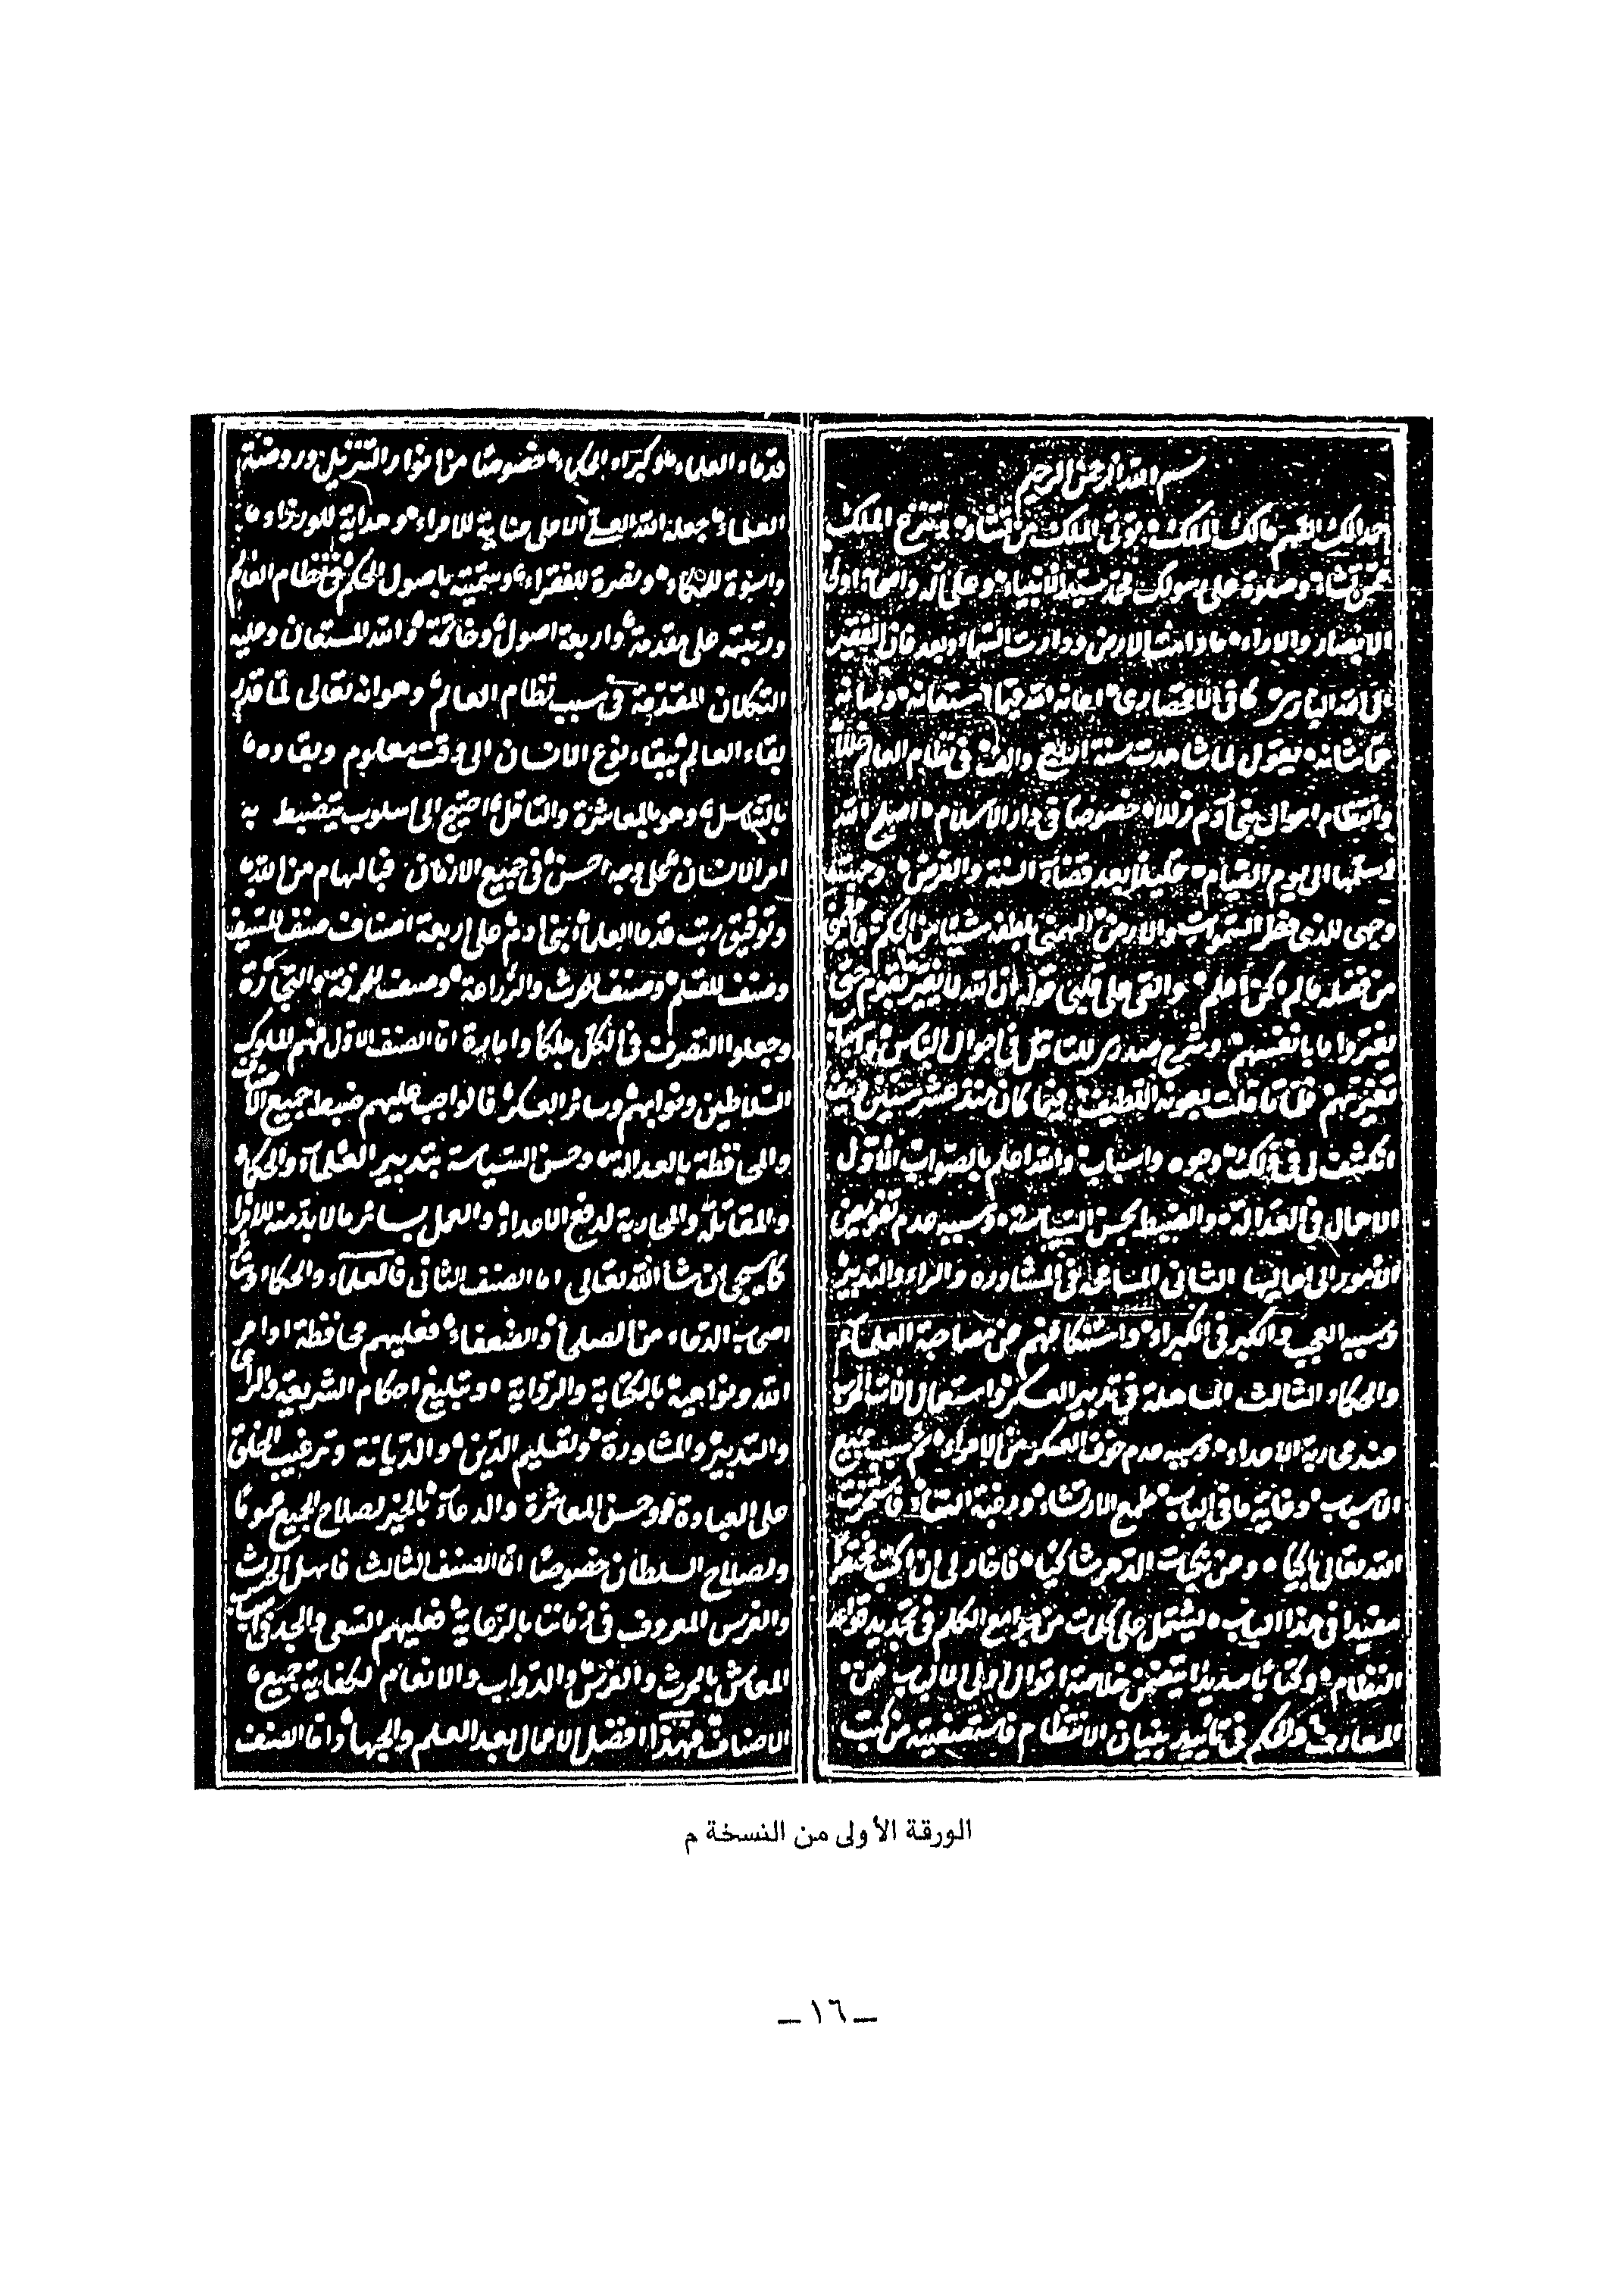 بسم الله الرحمن الرحيم
حمدا لك اللهم مالك الملك توتى الملك من تشاء وتنزع الملك
ممن تشاء وصلوة على رسولك محمد سيد الانبياء وعلى آله واصحابه اولى
الابصار والاراء ما دامت الارض ودارت السماء وبعد فان الفقير
الى الله البارى كافى الاقحصارى اعانه الله فيما استعانه وصانه
عما شانه يقول لما شاهدت سنة اربع والف فى نظام العالم خللا
وانتظام احوال بنى آدم زللا خصوصا فى دار الاسلام اصلح الله
وسلمها الى يوم القيام فليلا بعد قضاء السنة والفرض وجهت
وجهى للذى فطر السموات والارض الهمنى بلطفه شيئا من الحكم
من فضله ما لم اكن اعلم والقى على قلبى قوله ان الله لا يغير ما بقوم حتى
يغيروا ما بانفسهم وشرح صدرى للتامل فى احوال الناس واسباب
تغيرتهم فلما تاملت بعونه اللطيف فيما كان منذ عشر سنين
انكشف لى فى ذلك وجوه واسباب والله اعلم بالصواب الاول
الاهمال فى العدالة والضبط بحسن السياسة وسببه عدم تفويض
الامور الى اهاليها الثانى المساهلة فى المشاورة والراء والتدبير
وسببه العجب والكبر فى الكبراء واستنكافهم عن مصاحبة العلماء
والحكاء الثالث المساهلة فى تدبير العسكر واستعمال الات الحرب
عند محاربة الاعداء وسببه عدم خوف العسكر من الامراء ثم سبب جميع
الاسباب وغاية ما فى الباب طمع الارتشاء ورغبة النساء
الله تعالى باكيا ومن نكبات الدهر شاكيا فاختار لى ان اكتب مختصرا
مفيدا فى هذا الباب يشتمل على كلمات من جوامع الكلم فى تجديد قواعد
النظام وكتابا سديدا يتضمن خلاصة اقوال اولى الالباب من
المعارف والحكم فى تاييد بنيان الانتظام فاستصفيته من كتب
قدماء العلماء وكبراء الحكماء خصوصا من انوار التنزيل وروضة
العلماء جعله الله العلى الاعلى عناية للامراء وهداية للوزراء
واسوة للحكماء ونصرة للفقراء وسميته باصول الحكم فى نظام العالم
ورتبته على مقدمة واربعة اصول وخاتمة والله المستعان وعليه
التكلان المقدمة فى سبب نظام العالم وهو انه تعالى لما قدر
بقاء العالم ببقاء نوع الانسان الى وقت معلوم وبقاءه
بالتناسل وهو بالمعاشرة والتامل احتيج الى اسلوب ينضبط به
امر الانسان على وجه احسن فى جميع الازمان فبالهام من الله
وتوفيق رتب قدما العلماء بنى ادم على اربعة اصناف صنف للسيف
وصنف للقلم وصنف للحرث والزراعة وصنف للحرفة والتجارة
وجعلوا التصرف فى الكل ملكا وامارة اما الصنف الاول فهم الملوك
السلاطين ونوابهم وسائر العسكر فالواجب عليهم ضبط جميع الاصناف
والمحافظة بالعدالة وحسن السياسة بتدبير العلماء والحكماء
والمقاتلة والمحاربة لدفع الاعداء والعمل بسائر ما لا بد منه للامراء
كما سيجى ان شاء الله تعالى اما الصنف الثانى فالعلماء والحكماء وسائر
اصحاب الدعاء من الصلحاء والضعفاء فعليهم محافظة اوامر
الله ونواهيه بالكتابة والرواية وتبليغ احكام الشريعة والراى
والتدبير والمشاورة وتعليم الدين والديانة وترغيب الخلق
على العبادة وحسن المعاشرة والدعاء بالخير لصلاح الجميع عموما
ولصلاح السلطان خصوصا اما الصنف الثالث فاهل الحرث
والغرس المعروف فى زماننا بالرعاية فعليهم السعى والجد فى اكتساب
المعاش بالحرث والغرس والدواب والانعام لكفاية جميع
الاصناف فهذا افضل الاعمال بعد العلم والجهاد واما الصنف
الورقة الأولى من النسخة م
ـ ١٦ ـ